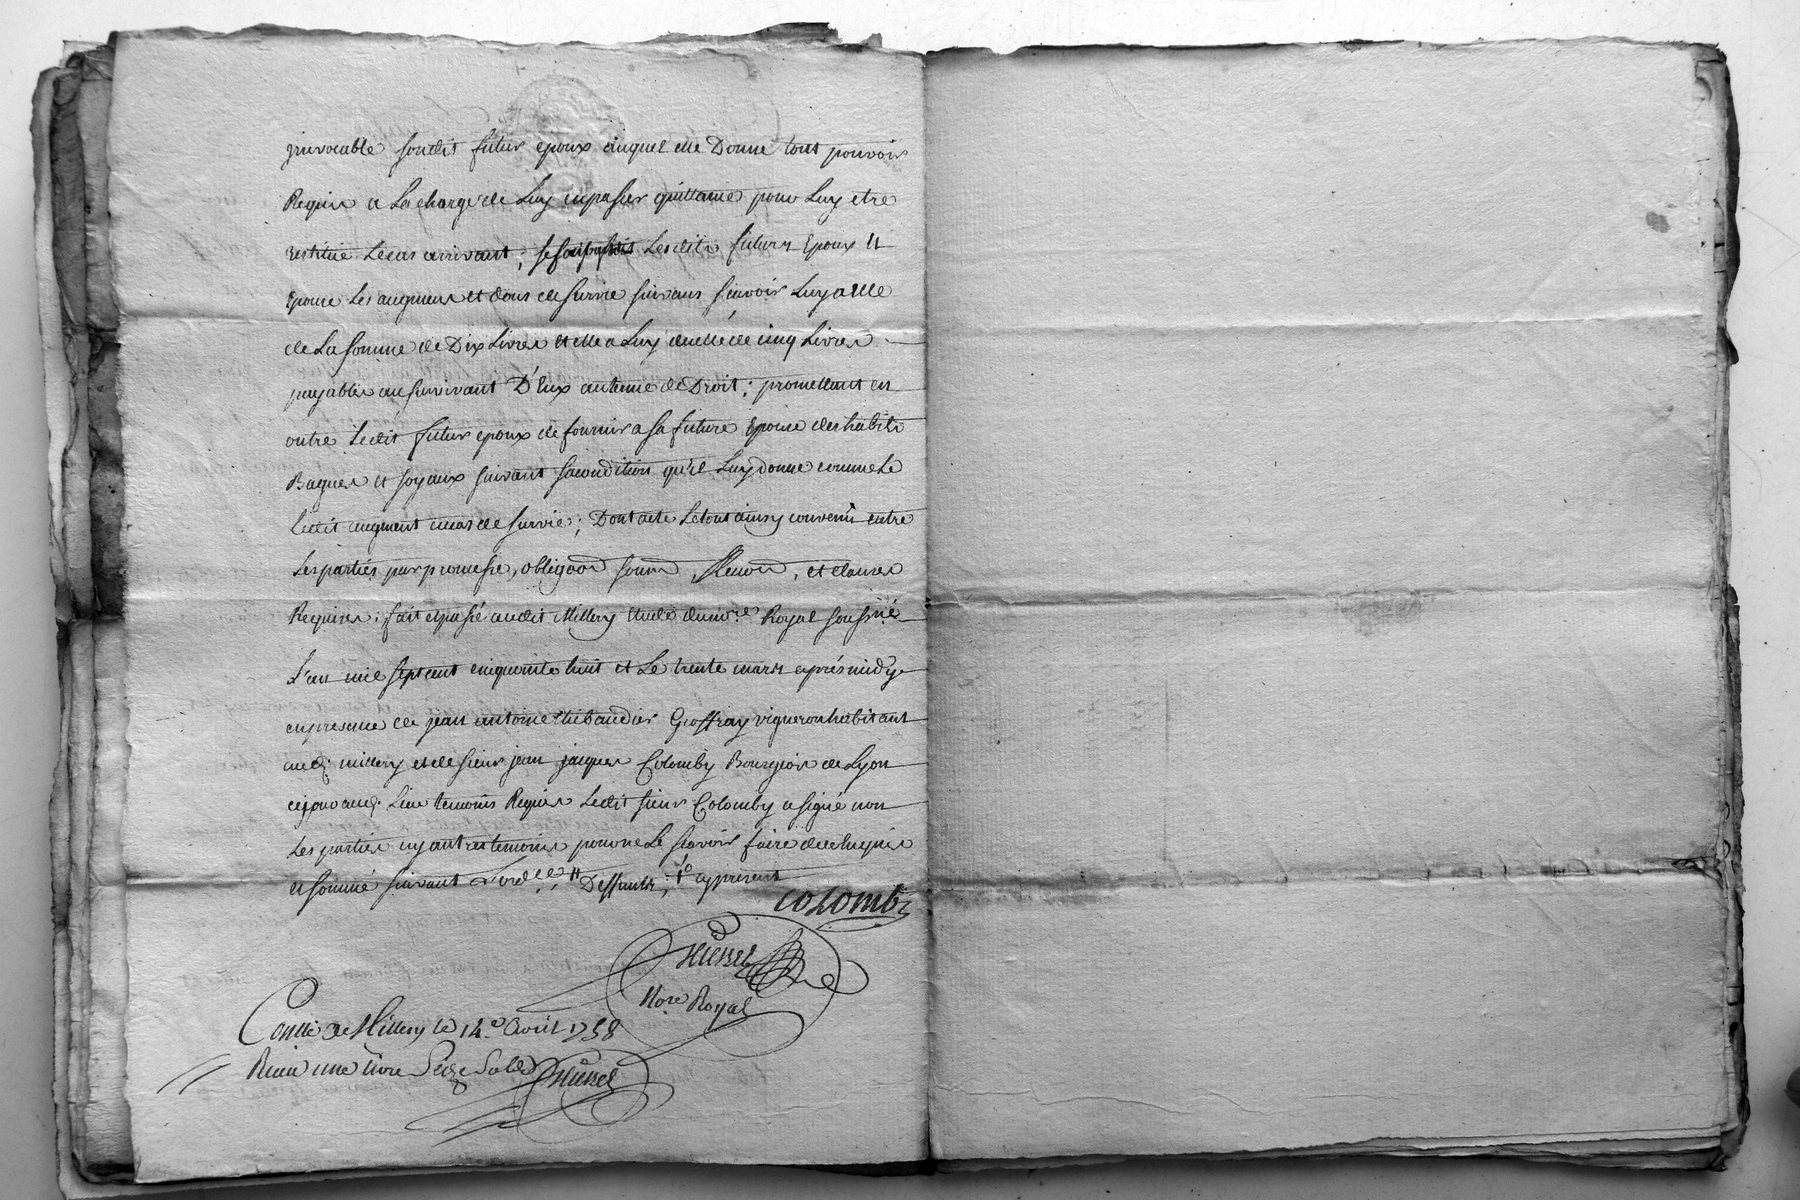 jrrevocable sondit futur epoux auquel elle Donne tout pouvoir
Requis a La charge de Luy en passer quittance pour Luy etre
restitué Lecas arrivant ; se font Lesdits futurs Epoux et
Epouse Les augment et dons de survie suivans scavoir Luy a elle
de La somme de Dix Livres et elle a Luy de celle de cinq Livres
payables au survivant D'Eux au terme de Droit ; promettant en
outre Ledit futur epoux de fournir a sa future Epouse des habits
Bagues et joyaux suivant sa condition qu'il Luy donne comme Le
Ledit augment en cas de survie ; Dont acte Le tout ainsy convenu entre
Les parties par promesse, obligaon soum , Renon , et clauses
Requises ; fait et passé audit Millery etude du nore Royal soussné
L'an mil sept cent cinquante huit et Le trente mars après midy
en presence de jean antoine thibaudier Geoffray vigneron habitant
aud. millery et de sieur jean jaques Colomby Bourgeois de Lyon
Lieu temoins Requis Ledit sieur Colomby a signé non
Les parties ny autres temoins pour ne Le scavoir faire de ce Enquis
et sommé suivant L'ord. et Deffauts ; a present
COLOMBy
Nore Royal
Conllé a Millery le 14e Avril 1758
Recu une livre Seize Sols